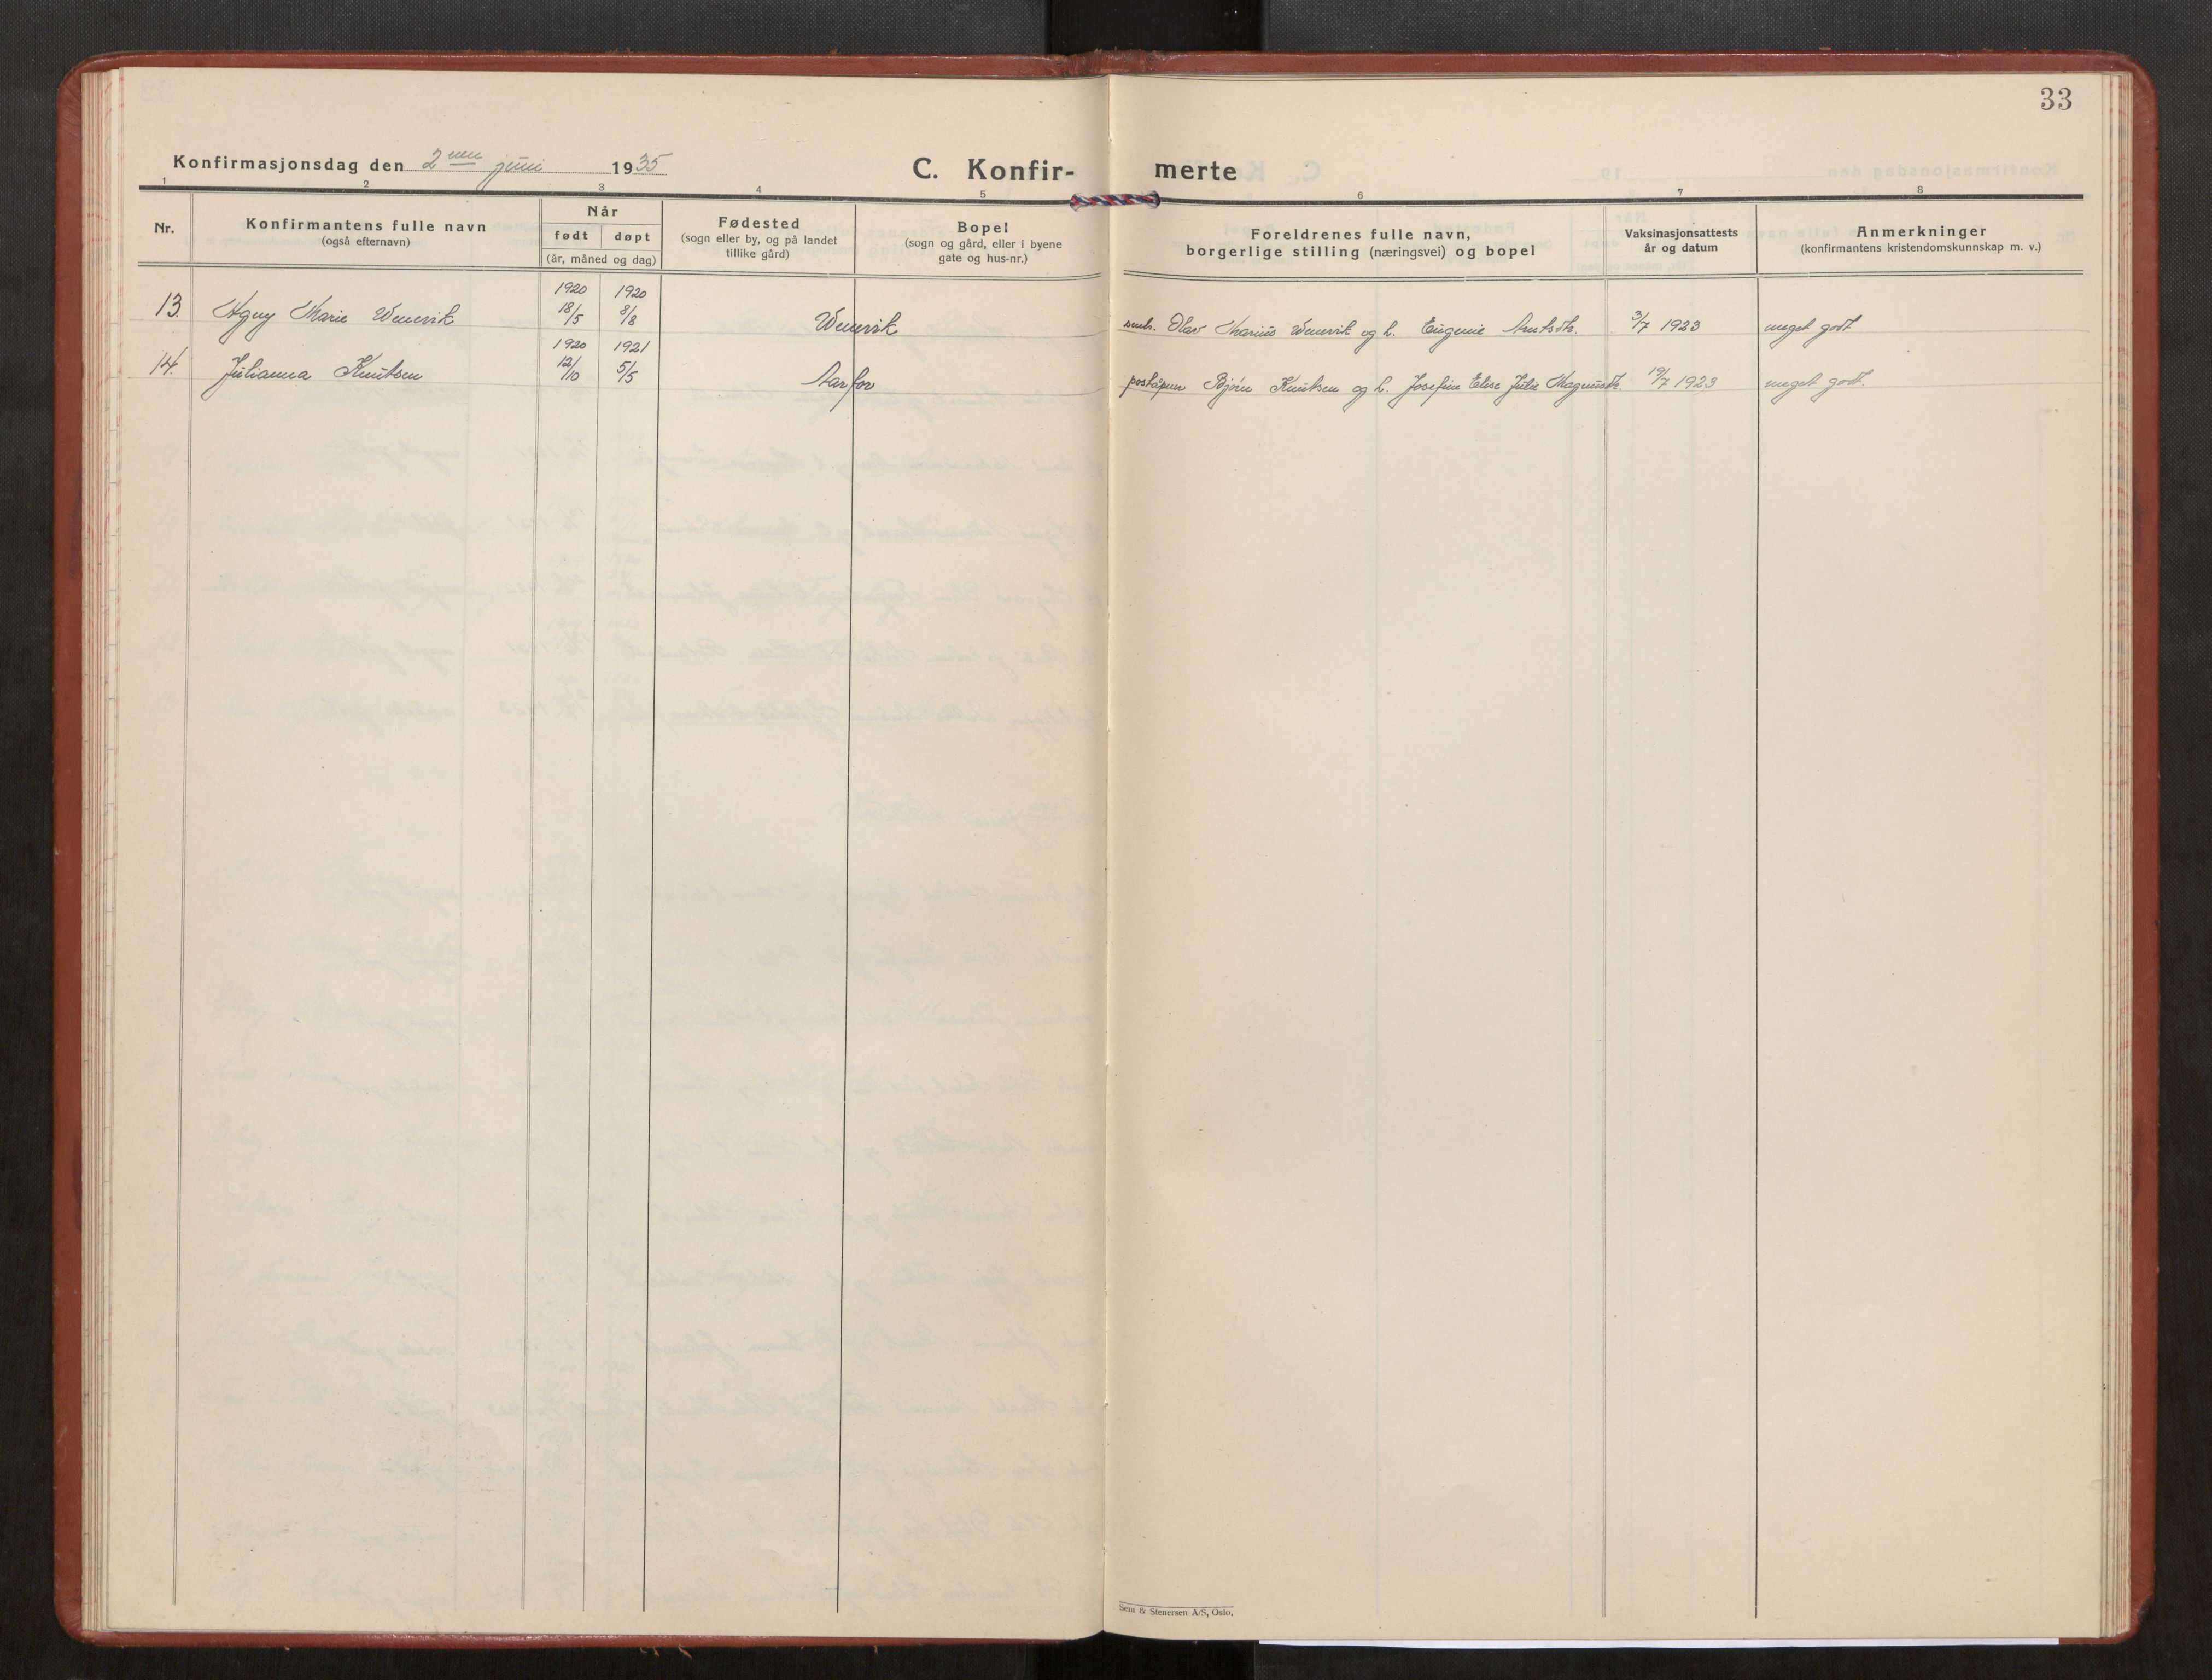 33
Konfirmasjonsdag den 2nen juni 1935
C. Konfir- merte
1 2 3 4 5 6 7 8
Nr.
Konfirmantens fulle navn
(også efternavn)
Når
født døpt
(år, måned og dag)
Fødested
(sogn eller by, og på landet
tillike gård)
Bopel
(sogn og gård, eller i byene
gate og hus-nr.)
Foreldrenes fulle navn,
borgerlige stilling (næringsvei) og bopel
Vaksinasjonsattests
år og datum
Anmerkninger
(konfirmantens kristendomskunnskap m. v.)
1920 1920
13. Agny Marie Wennevik 18/5 8/8 Wennevik Olav Marius Wennevik og h. Eugenie 3/7 1923 meget godt
1920 1921
14. Julianna Knutsen 12/10 5/5 Aarfor poståpner Bjørn Knutsen og h. Josefine Elise Julie Magnusdt. 19/7 1923 meget godt.
Sem & Stenersen A/S, Oslo.